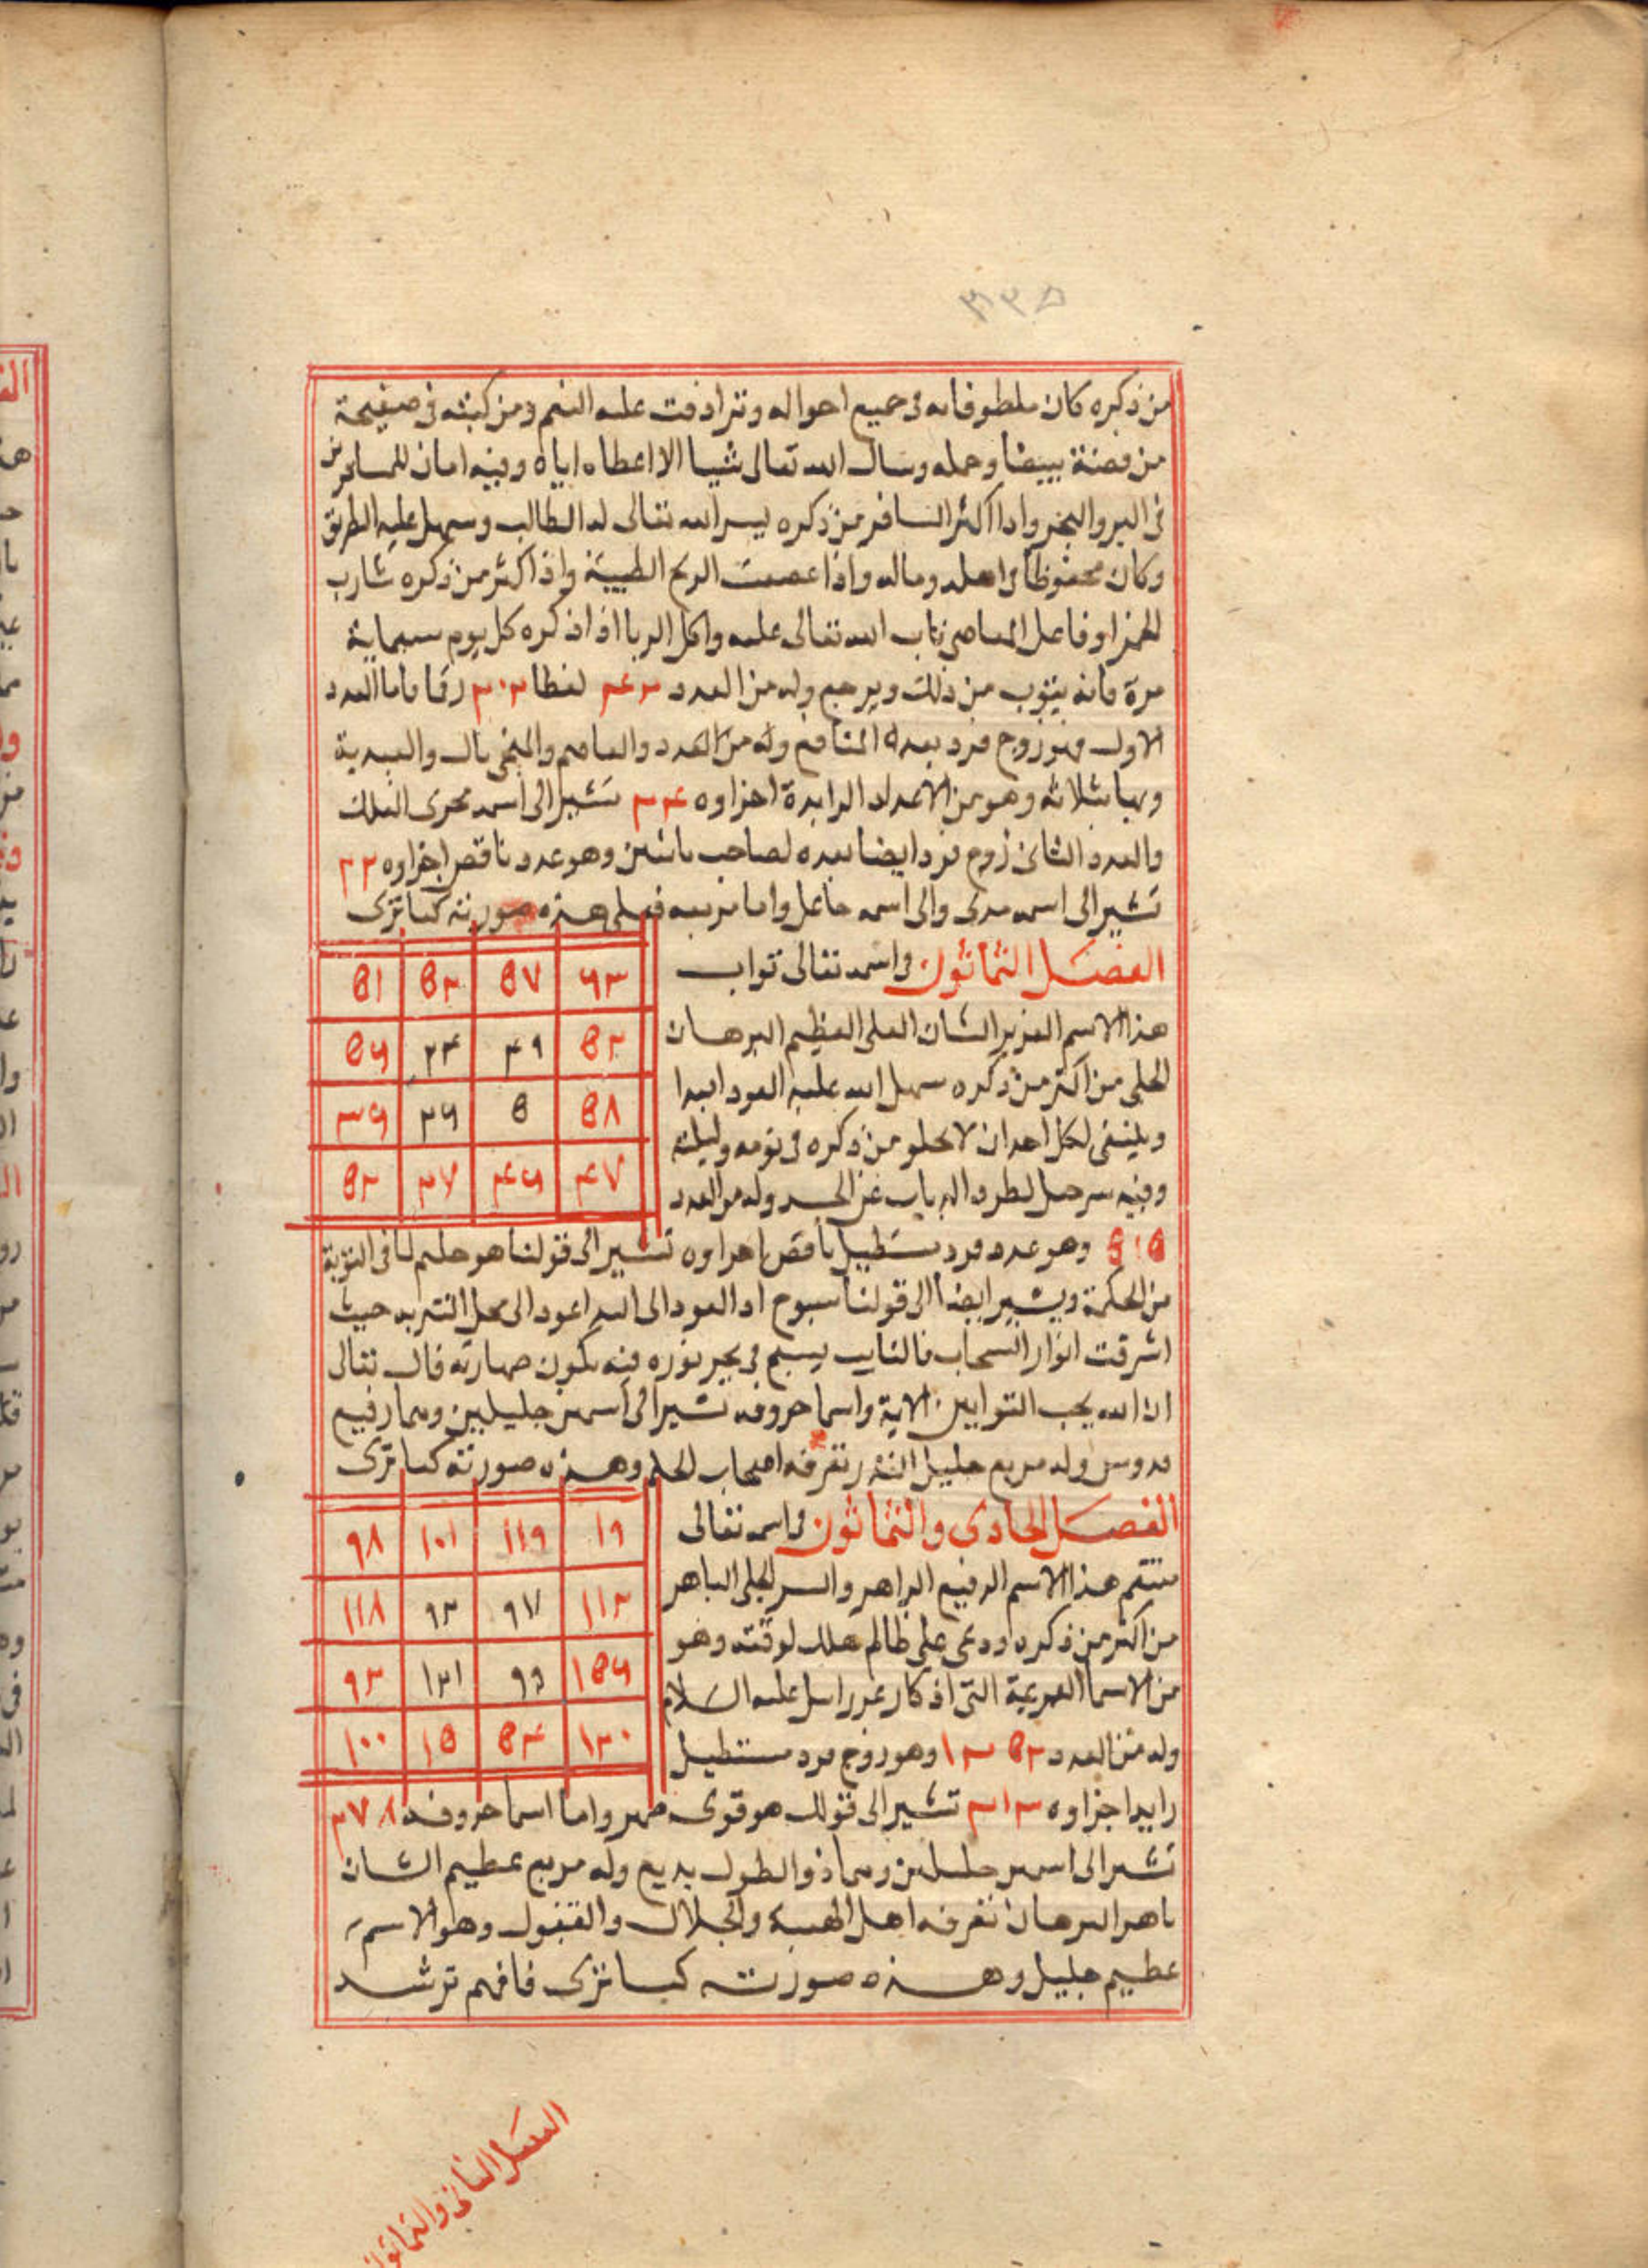 ٣١٣٥
من ذكره كان ملطوفا به فى جميع احواله وترادفت عليه النعم ومن كتبه فى صفيحة
من فضة بيضا وحمله وسال الله تعالى شيا الا اعطاه اياه وفيه امان للمسافرين
فى البر والبحر واذا اكثر المسافر من ذكره يسر الله تعالى له الطالب وسهل عليه الطريق
وكان محفوظا فى اهله وماله واذا عصفت الريح الطيبة واذا اكثر من ذكره شارب
الخمر او فاعل المعاصى تاب الله تعالى عليه واكل الربا اذا ذكره كل يوم سبعماية
مرة فانه يتوب من ذلك ويرجع وله من العدد لفظا رقما فاما العدد
الاول فهو زوج فرد بعده
وهو من الاعداد الزايدة اجزاوه تشير الى اسمه مجرى الفلك
والعدد الثانى زوج فرد ايضا وهو عدد ناقص اجزاوه ٢٢
تشير الى اسمه والى اسمه جاعل واما مربعه فعلى هذه صورته كما ترى
الفصل الثمانون فى اسمه تعالى تواب
هذا الاسم العزيز الشان العلى العظيم البرهان
الجلى من اكثر من ذكره سهل الله عليه العود ابدا
وينبغى لكل احد ان لا يخلو من ذكره فى يومه وليلته
وفيه سر جليل لطرد الذباب عن الجسد وله من العدد
٦٣ ٥٧ ٥٣ ٥١
٥٢ ٤٩ ٢٤ ٥٦
٥٨ ٥ ٢٦ ٣٦
٤٧ ٤٦ ٢٧ ٥٢
وهو عدد فرد مستطيل ناقص اجزاوه تشير الى قولنا هو حليم لما فى التوبة
من الحكمة ويشير ايضا الى قولنا سبوح اذ العود الى الله اعود الى محل التنزيه حيث
اشرقت انوار السحاب فالتايب يسبح فى بحر نوره فيه تكون طهارته قال تعالى
ان الله يحب التوابين الاية واسما حروفه تشير الى اسمين جليلين وهما رفيع
قدوس وله مربع جليل القدر تعرفه اصحاب وهذه صورته كما ترى
الفصل الحادى والثمانون فى اسمه تعالى
منتقم هذا الاسم الرفيع الزاهر والسر الجلى الباهر
من اكثر من ذكره ودعى على ظالم هلك لوقته وهو
من الاسما التى اذكار عزرائيل عليه السلام
وله من العدد وهو زوج فرد مستطيل
١٩ ١١٩ ١٠١ ٩٨
١١٢ ٩٧ ٩٣ ١١٨
١٥٦ ٩٩ ١٢١ ٩٣
١٢٠ ٥٤ ١٥ ١٠٠
زايد اجزاوه تشير الى قولك هو قوى واما اسما حروفه ٢٧٨
تشير الى اسمين جليلين وهما ذو الطول بديع وله مربع عظيم الشان
باهر البرهان تعرفه اهل الهيبة والجلال والقبول وهو الاسم
عظيم جليل وهذه صورته كما ترى فافهم ترشد
الفصل الثانى والثمانون